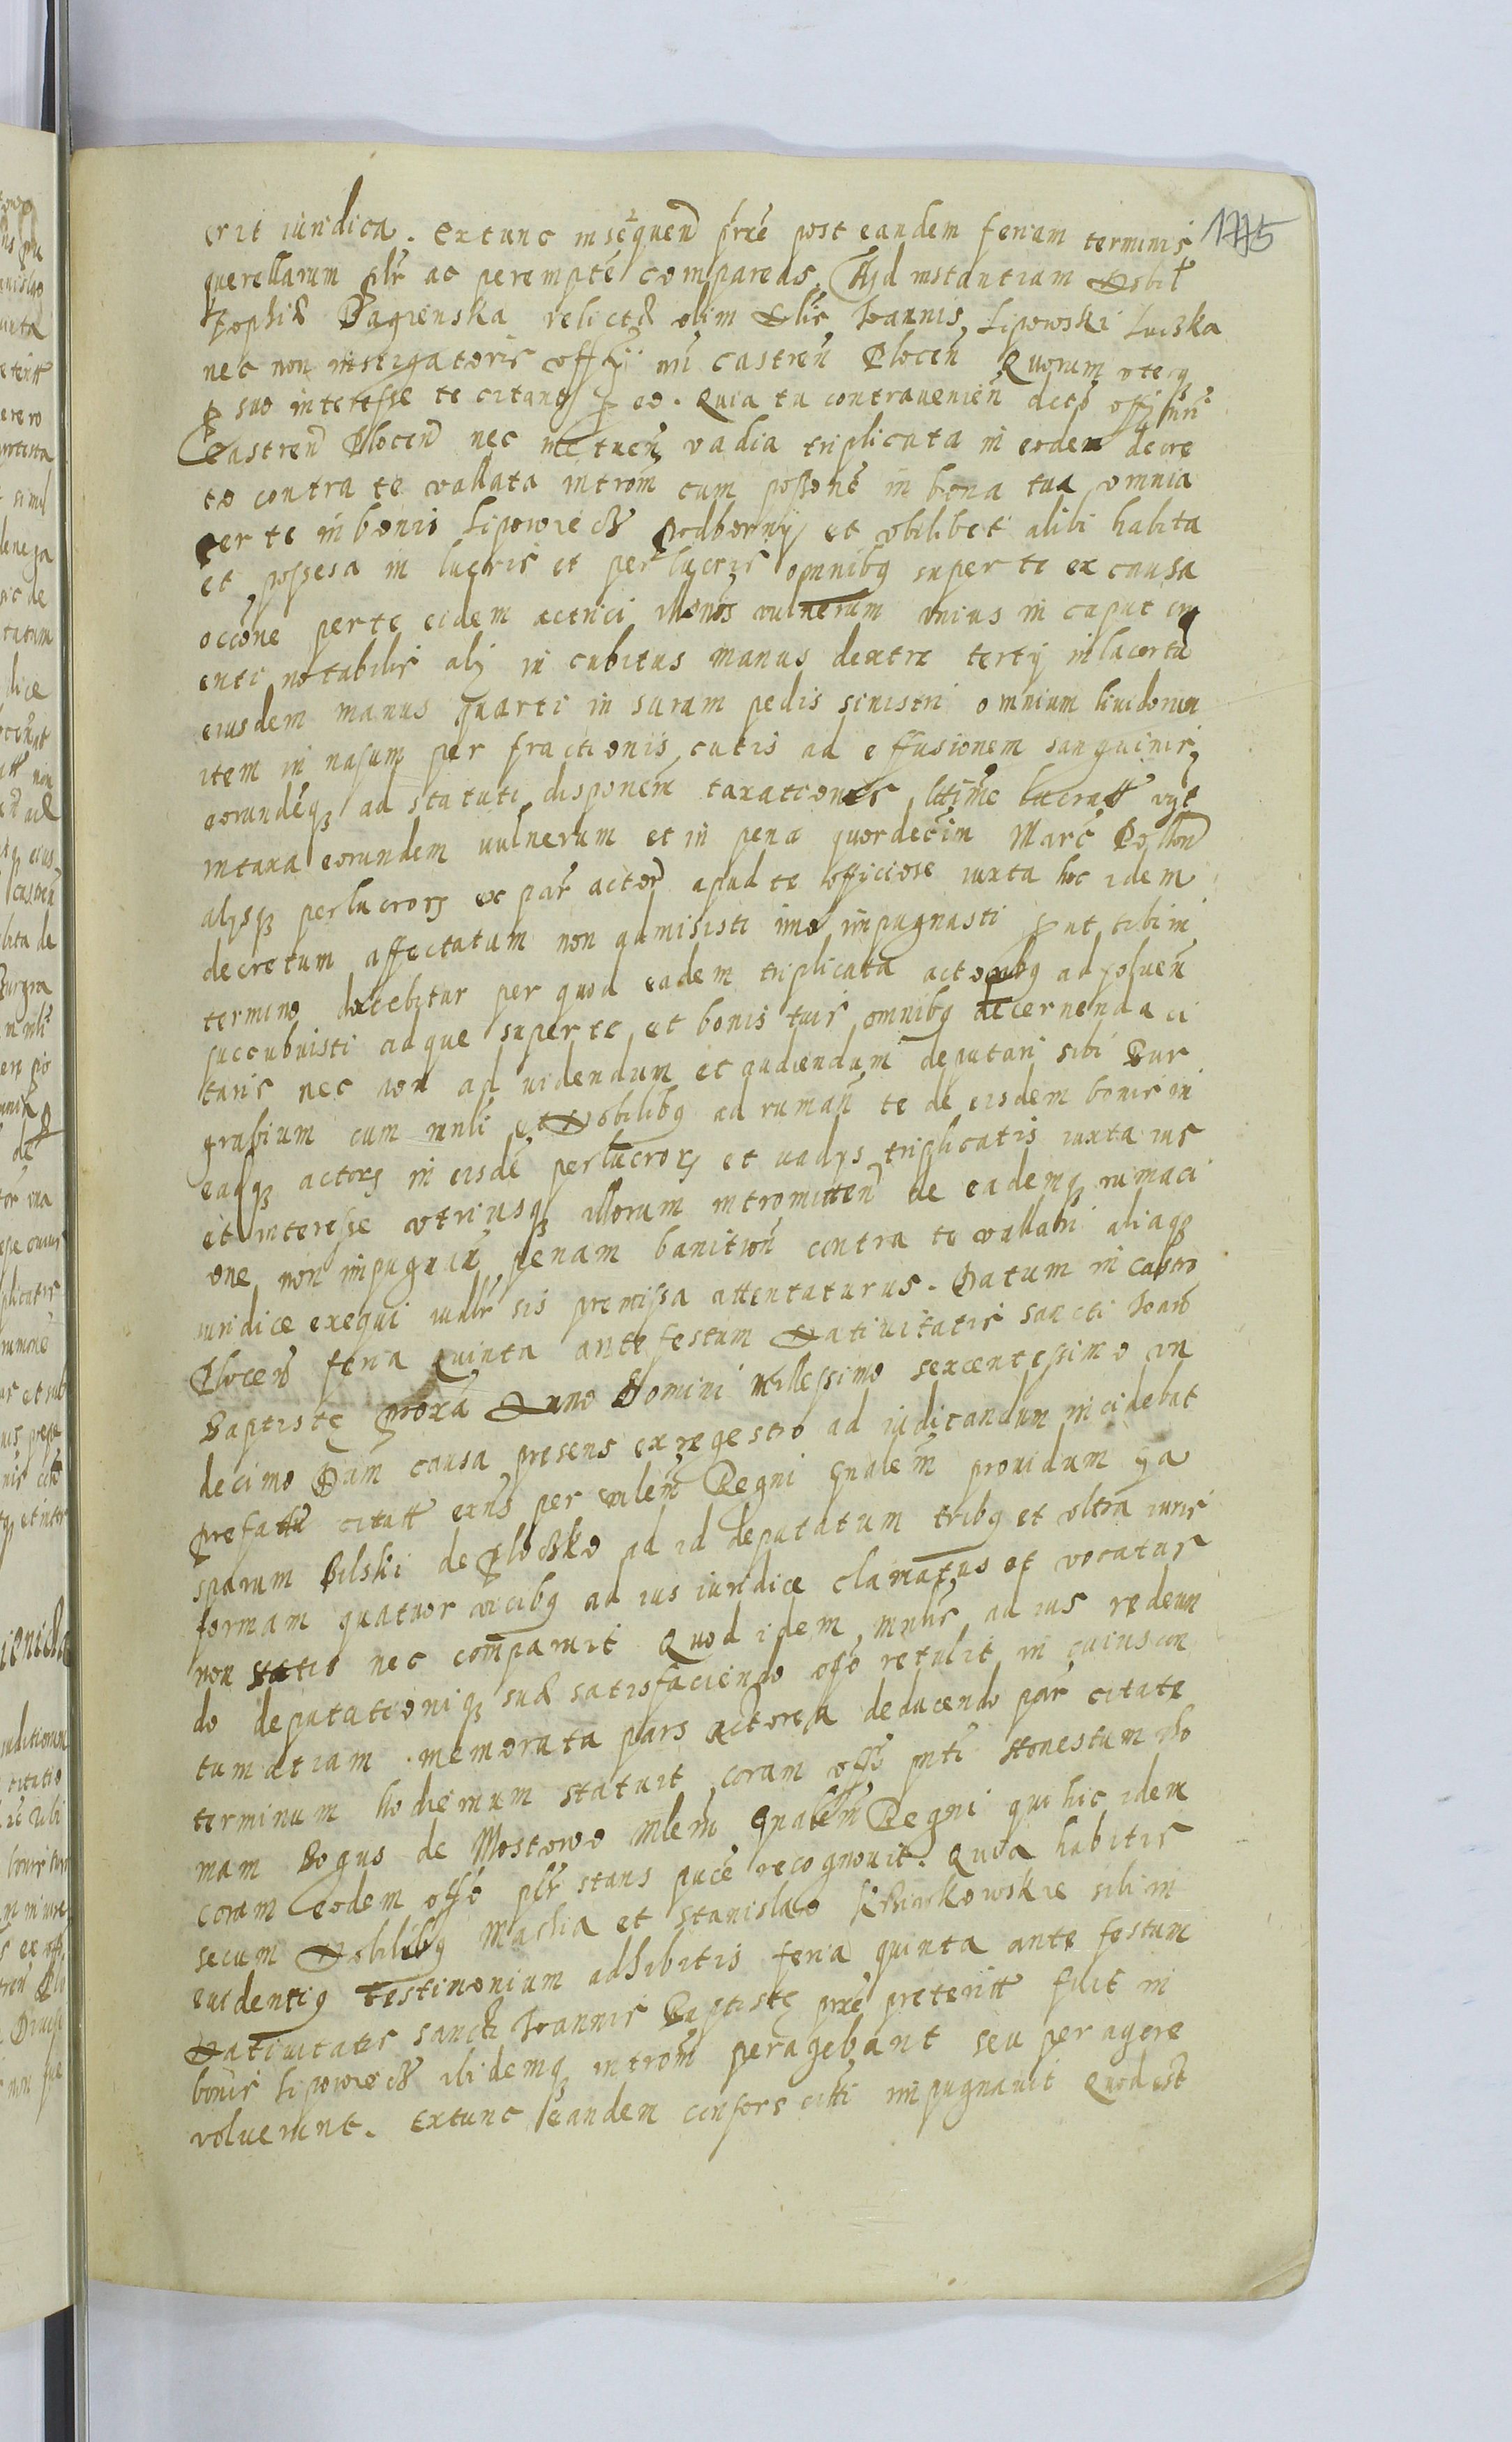 1775
erit iuridica. Extunc insequen prxē post eandem feriam terminis
querellarum plr ac perempte compareas. Ad instantiam Nobił
Zophiæ Bagienska relictæ olim Nlis Joannis Lipowski Luiska
nec non instigatoris officij nri castren Plocen Quorum vterq
p suo interesse te citant p eo. Quia tu contrauenien dcto offij nri
Castren Plocen nec metuen vadia triplicata in eodem decre
to contra te vallata introm cum possone in bona tua omnia
per te in bonis Lipowiecz Podborny et vbilibet alibi habita
et possesa in lucris et perlucris omnibq super te ex causa
occone per te eidem actrici illonos vulnerum vnius in caput cru
enti notabilis alij in cubitus manus dextre tertij in lacerta
eiusdem manus quarti in suram pedis sinistri omnium liuidorum
item in nasum per fractionis cutis ad effusionem sanguinis,
eorundeqz ad statuti disponem taxationes lttime lucratt vyt
intaxa eorundem vulnerum et in pena quordecim Marc Pollon
alysqz perlucrors ex par actor apud te officiose iuxta hoc idem
decretum affectatum non admisisti imo impugnasti put tibi in
termino docebitur per quod eadem triplicata actoribq ad soluen
succubuisti adque super te et bonis tuis omnibq decernenda ci
taris nec non ad videndum et audiendum deputari sibi Bur
grabium cum mnli et Nobilibq ad ruman te de eisdem bonis in
eaqz actors in eisde perlucrors et vadys triplicatis iuxta ius
et interesse vtriusqz illorum intromitten de eademqz rumaci
one non impugnan penam banition contra te vallari aliaqz
iuridice exequi iudlr sis premissa attentaturus. Datum in Castro
Plocen feria Quinta ante festum Natiuitatis Sancti Joan
Baptiste proxa Anno Domini Millessimo sexcentessimo vn
decimo Dum causa presens ex regestro ad iudicandum incidebat
prefatu citatt exns per mlem Regni gnalem prouidum ga
sparum Bilski de Plocko ad id deputatum tribq et vltra iuris
formam quatuor vicibq ad ius iuridice clamatus et vocatus
non stetit nec comparuit Quod idem mnlis ad ius redeun
do deputationiqz suæ satisfaciendo offo retulit in cuius con
tumatiam memorata pars actorea deducendo par citate
terminum hodiernum statuit coram offo pnti Honestum tho
mam Bogus de Mostowo mlem gnalem Regni qui hic idem
coram eodem offo plr stans puce recognouit. Quia habitis
secum Nobilibq Mathia et Stanislao sibi in
euidentiq testimonium adhibitis feria quinta ante festum
Natiuitatis sancti Joannis Baptiste prxe preteritt fuit in
bonis Lipowiecz ibidemqz introm peragebant seu peragere
voluerunt. Extunc eandem consors citti impugnauit Quod est